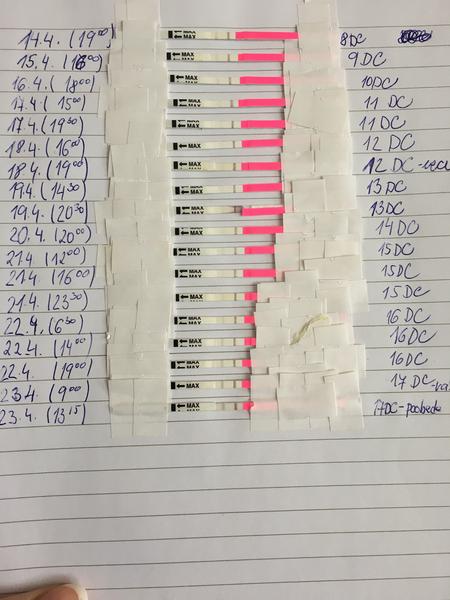 14.4. (19⁰⁰) MAX 8DC
15.4. (16⁰⁰) MAX 9DC
16.4. (18⁰⁰) MAX 10DC
17.4. (15⁰⁰) MAX 11 DC
17.4. (19³⁰) MAX 11 DC
18.4. (16⁰⁰) MAX 12 DC
18.4. (19⁰⁰) MAX 12 DC
19.4. (14³⁰) MAX 13DC
19.4. (20³⁰) MAX 13DC
20.4. (20⁰⁰) MAX 14DC
21.4. (12⁰⁰) MAX 15DC
21.4. (16⁰⁰) MAX 15DC
21.4. (23³⁰) MAX 15 DC
22.4. (6³⁰) MAX 16 DC
22.4. (14⁰⁰) MAX 16DC
22.4. (19⁰⁰) MAX 16 DC
23.4. (9⁰⁰) MAX 17 DC
23.4. (13¹⁵) MAX 17DC